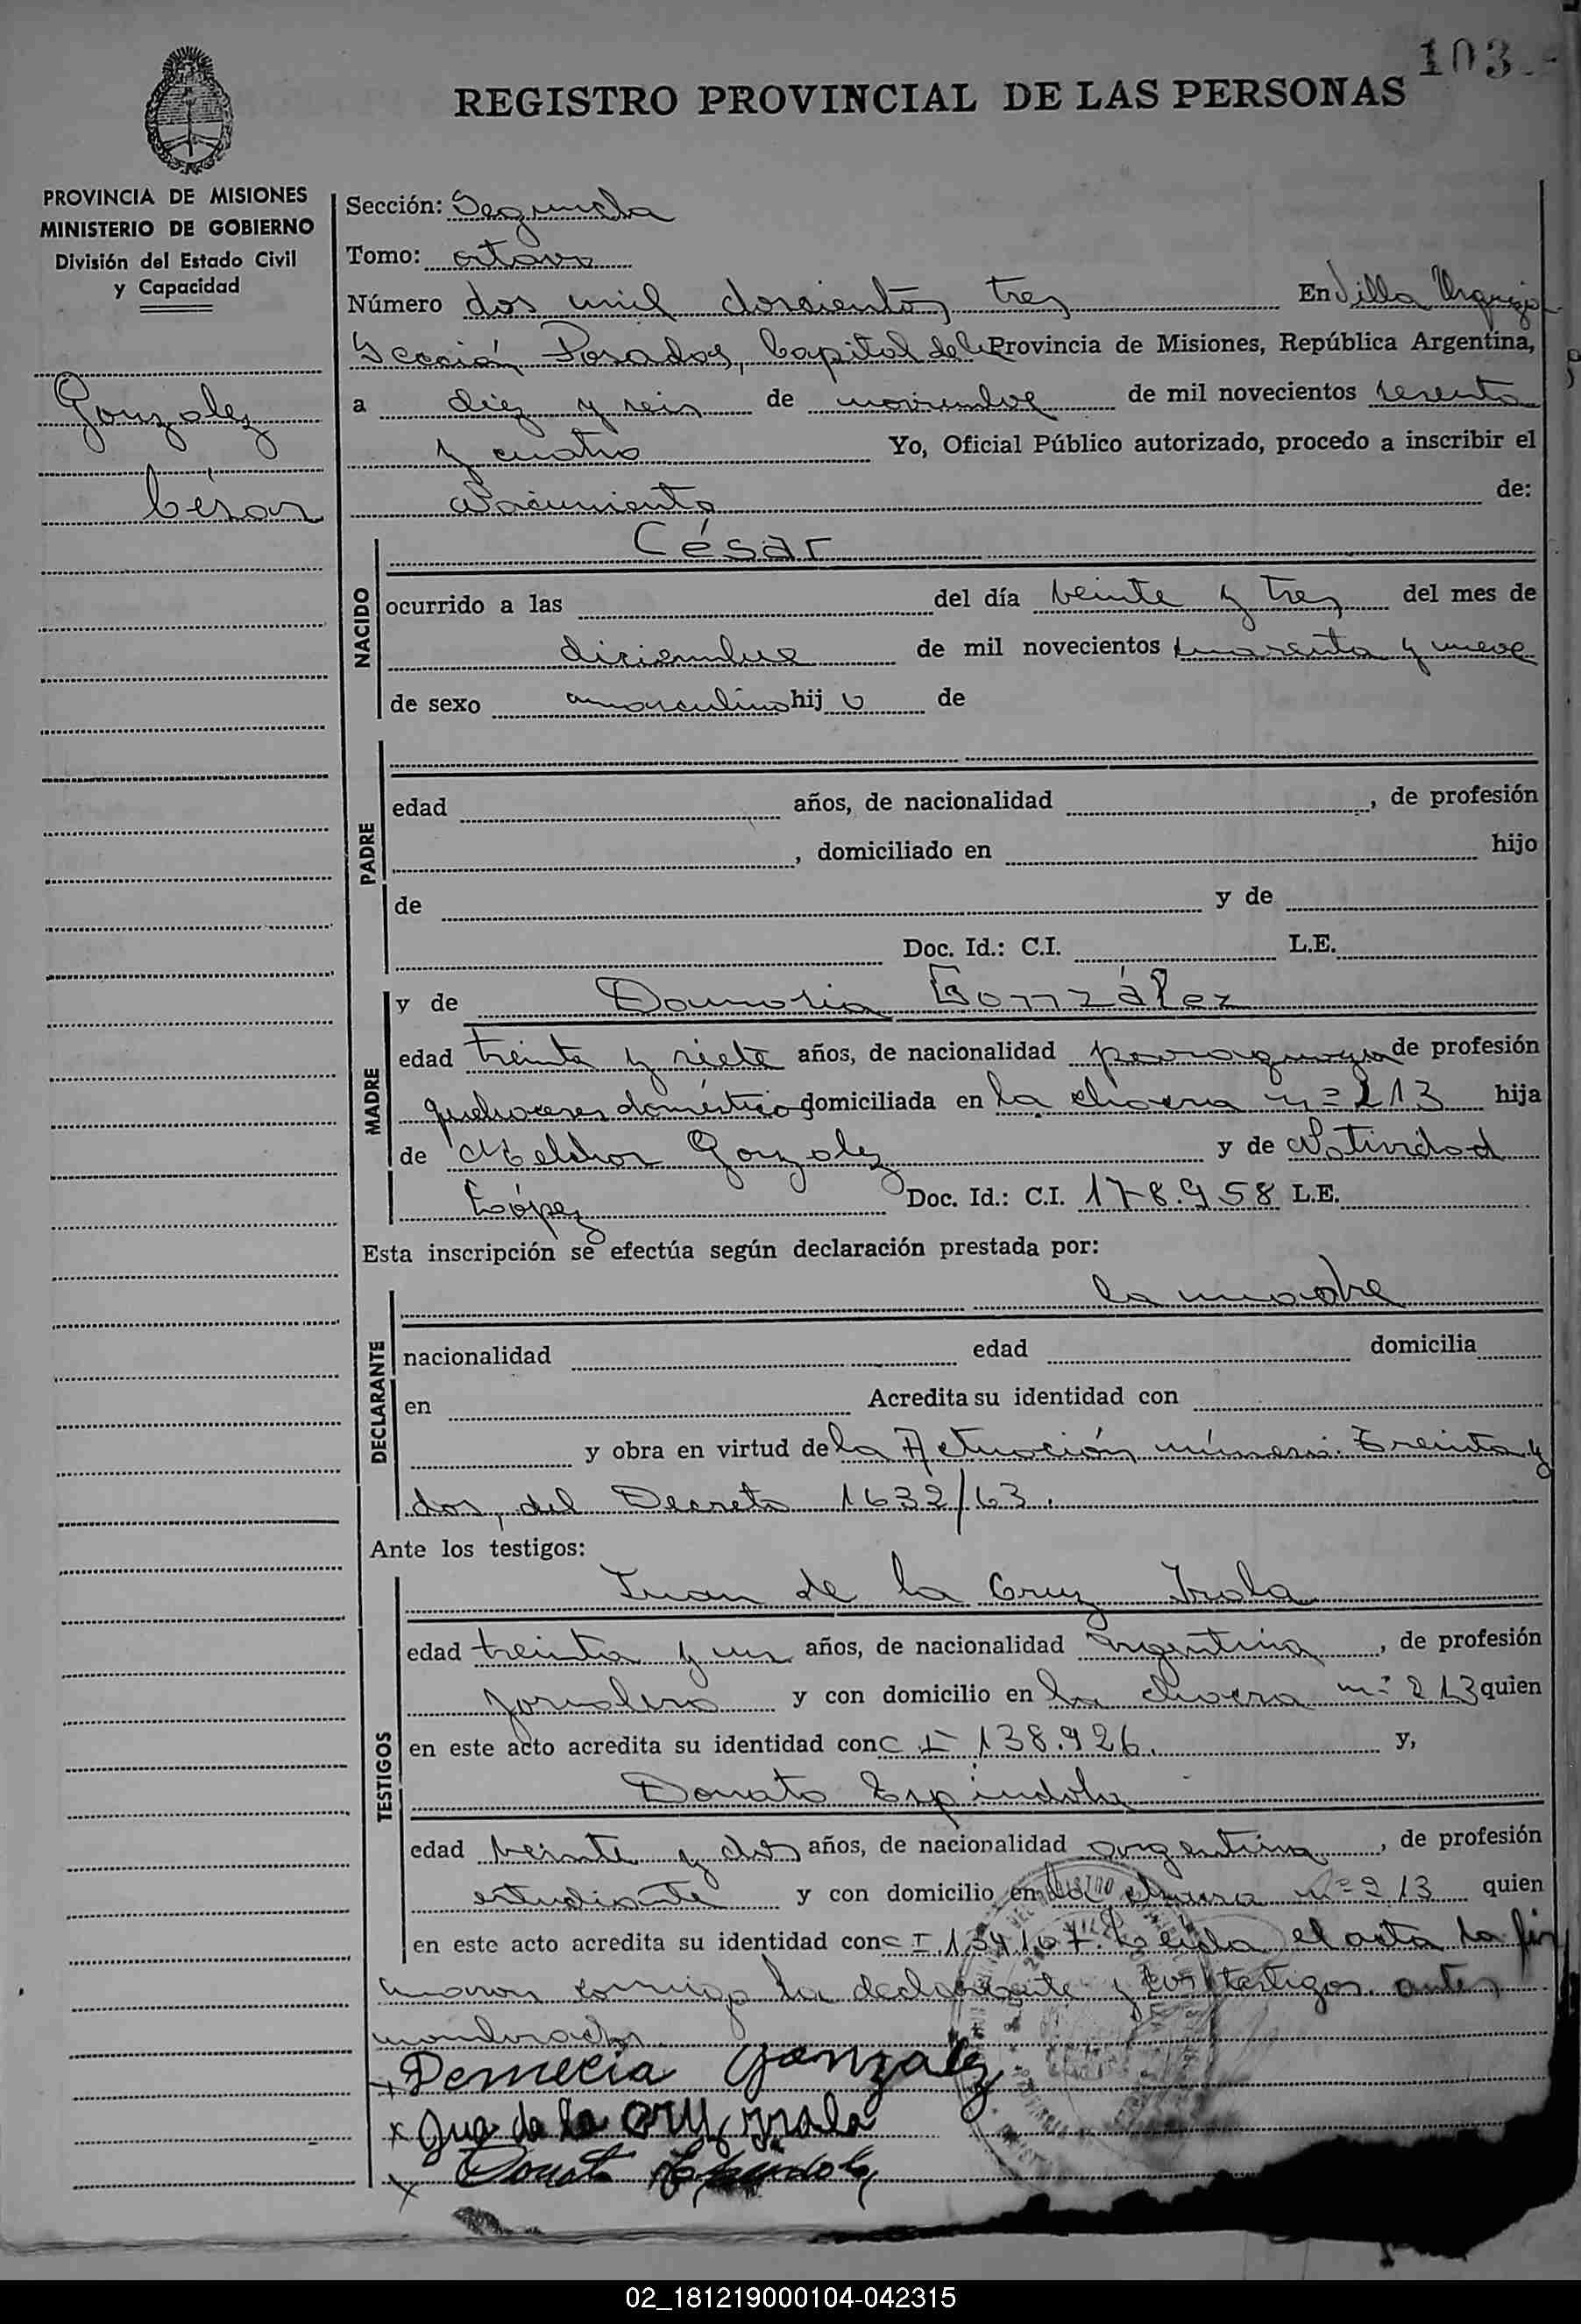 103.-
REGISTRO PROVINCIAL DE LAS PERSONAS
PROVINCIA DE MISIONES
MINISTERIO DE GOBIERNO
División del Estado Civil
y Capacidad
Gonzalez
César
Sección: Segunda
Tomo: octavo
Número dos mil doscientos tres En Villa Urquiza
Sección Posadas, Capital de la Provincia de Misiones, República Argentina,
a diez y seis de noviembre de mil novecientos sesenta
y cuatro Yo, Oficial Público autorizado, procedo a inscribir el
Nacimiento de:
NACIDO
César
ocurrido a las del día veinte y tres del mes de
diciembre de mil novecientos cuarenta y nueve
de sexo masculino hijo de
PADRE
edad años, de nacionalidad , de profesión
, domiciliado en hijo
de y de
Doc. Id.: C.I. L.E.
MADRE
y de González
edad treinta y siete años, de nacionalidad paraguaya de profesión
quehaceres domésticos domiciliada en la chacra nº 213 hija
de Melchor Gonzalez y de Natividad
López Doc. Id.: C.I. 178.958 L.E.
Esta inscripción se efectúa según declaración prestada por:
DECLARANTE
la madre
nacionalidad edad domicilia
en Acredita su identidad con
y obra en virtud de la Actuación número: Treinta y
dos, del Decreto 1632/63.
Ante los testigos:
TESTIGOS
Juan de la Cruz Irala
edad treinta y un años, de nacionalidad argentina , de profesión
jornalero y con domicilio en la chacra nº 213 quien
en este acto acredita su identidad con C I 138.926. y,
Donato Espindola
edad veinte y dos años, de nacionalidad argentina , de profesión
estudiante y con domicilio en la chacra nº 213 quien
en este acto acredita su identidad con C I 134.107. Leída el acta la fir
maron conmigo la declarante y los testigos antes
nombrados.
x Demecia Gonzalez
x Jua de la Cruz Irala
x Donato Espindola
02_181219000104-042315